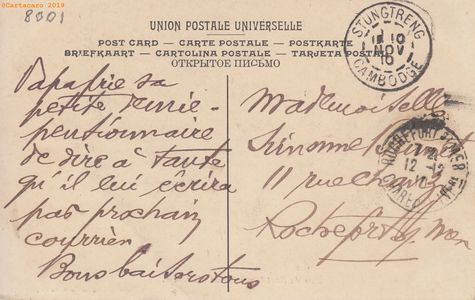 @Cartacaro 2019
8001
UNION POSTALE UNIVERSELLE
POST CARD — CARTE POSTALE — POSTKARTE
BRIEFKAART — CARTOLINA POSTALE — TARJETA POSTAL
ОТКРЫТОЕ ПИСЬМО
STUNGTRENG
10
NOV
10
CAMBODGE
Papa prie sa
petite
pensionnaire
de dire à tante
qu'il lui écrira
par prochain
courrier
Bons baisers à tous
Mademoiselle
Simonne
11 rue
Rochefort s/ Mer
ROCHEFORT S MER
12 - 12